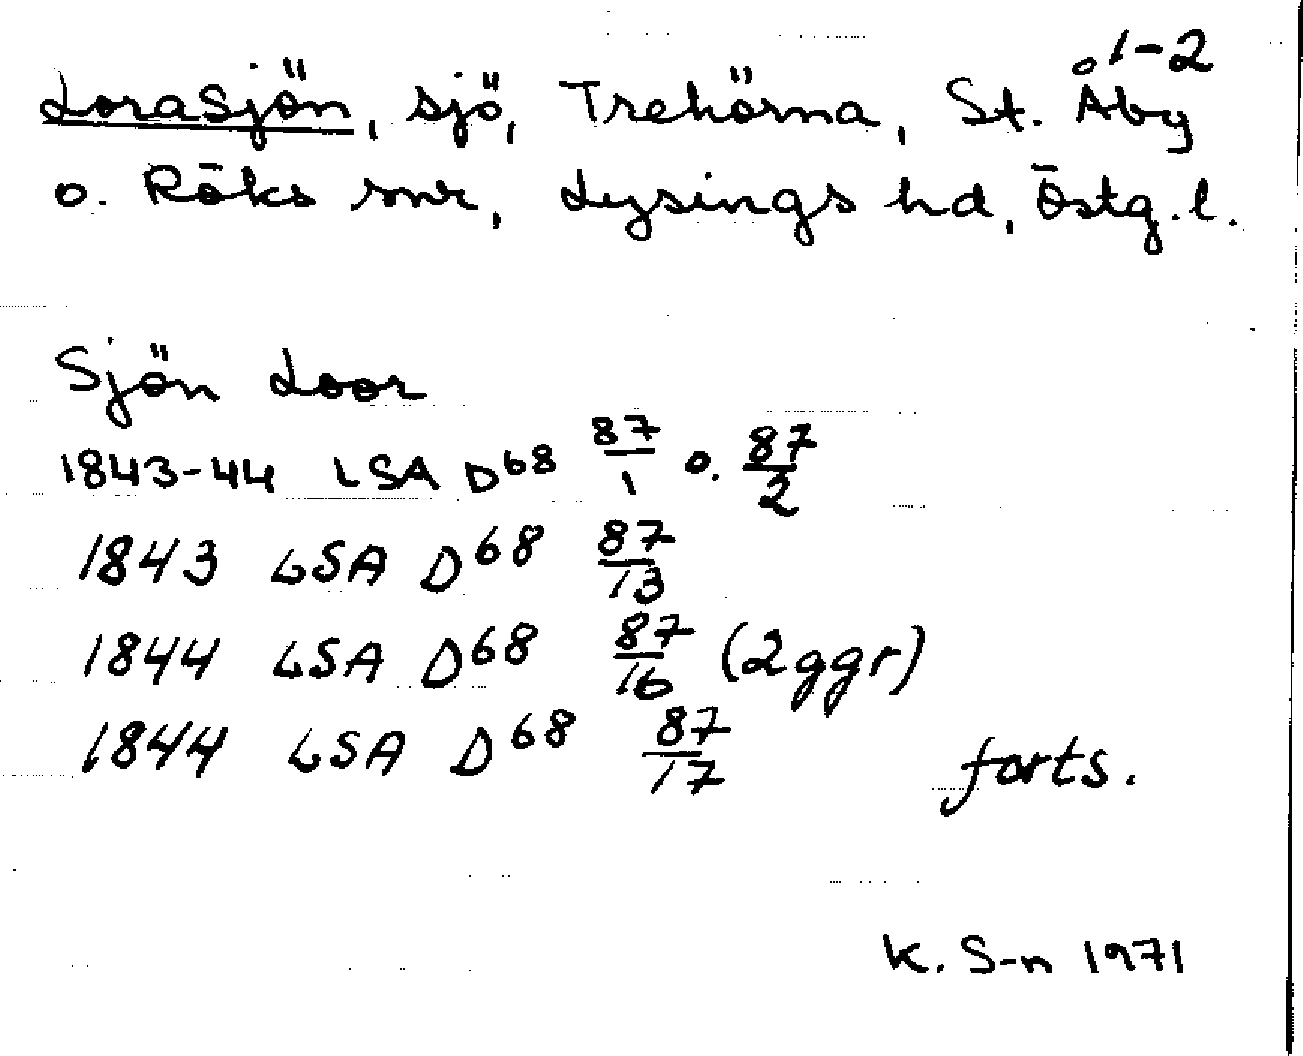 1-2
Lorasjön, sjö, Trehörna, St. Åby
o. Röks snr, Lysings hd, Östg.l.
Sjön Loor
1843-44 LSA D68 87/1 o. 87/2
1843 LSA D68 87/13
1844 LSA D68 87/16 (2ggr)
1844 LSA D68 87/17
forts.
K. S-n 1971